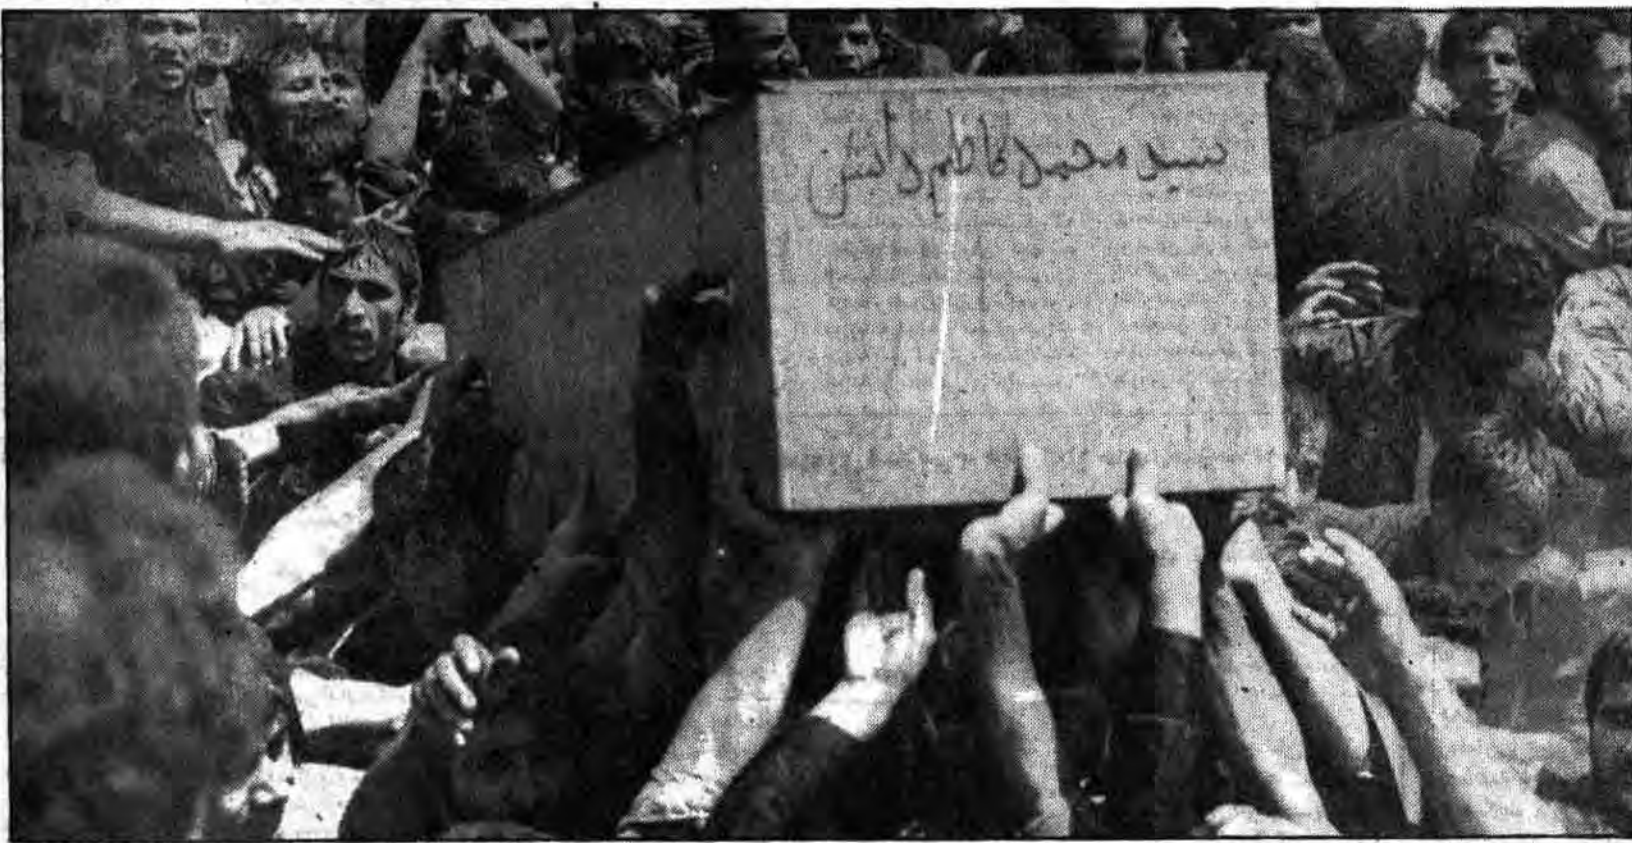 سید محمد کاظم دانش